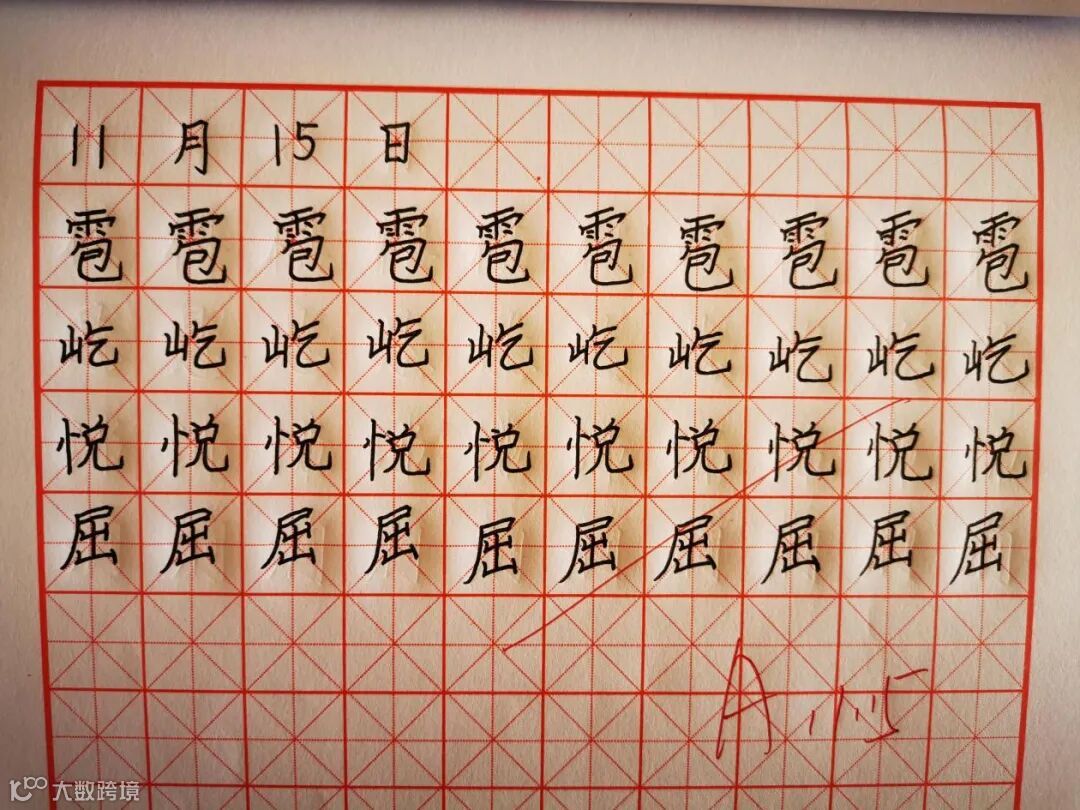 11月15日
雹雹雹雹雹雹雹雹雹雹
屹屹屹屹屹屹屹屹屹屹
悦悦悦悦悦悦悦悦悦悦
屈屈屈屈屈屈屈屈屈屈
A 11.15
大数跨境